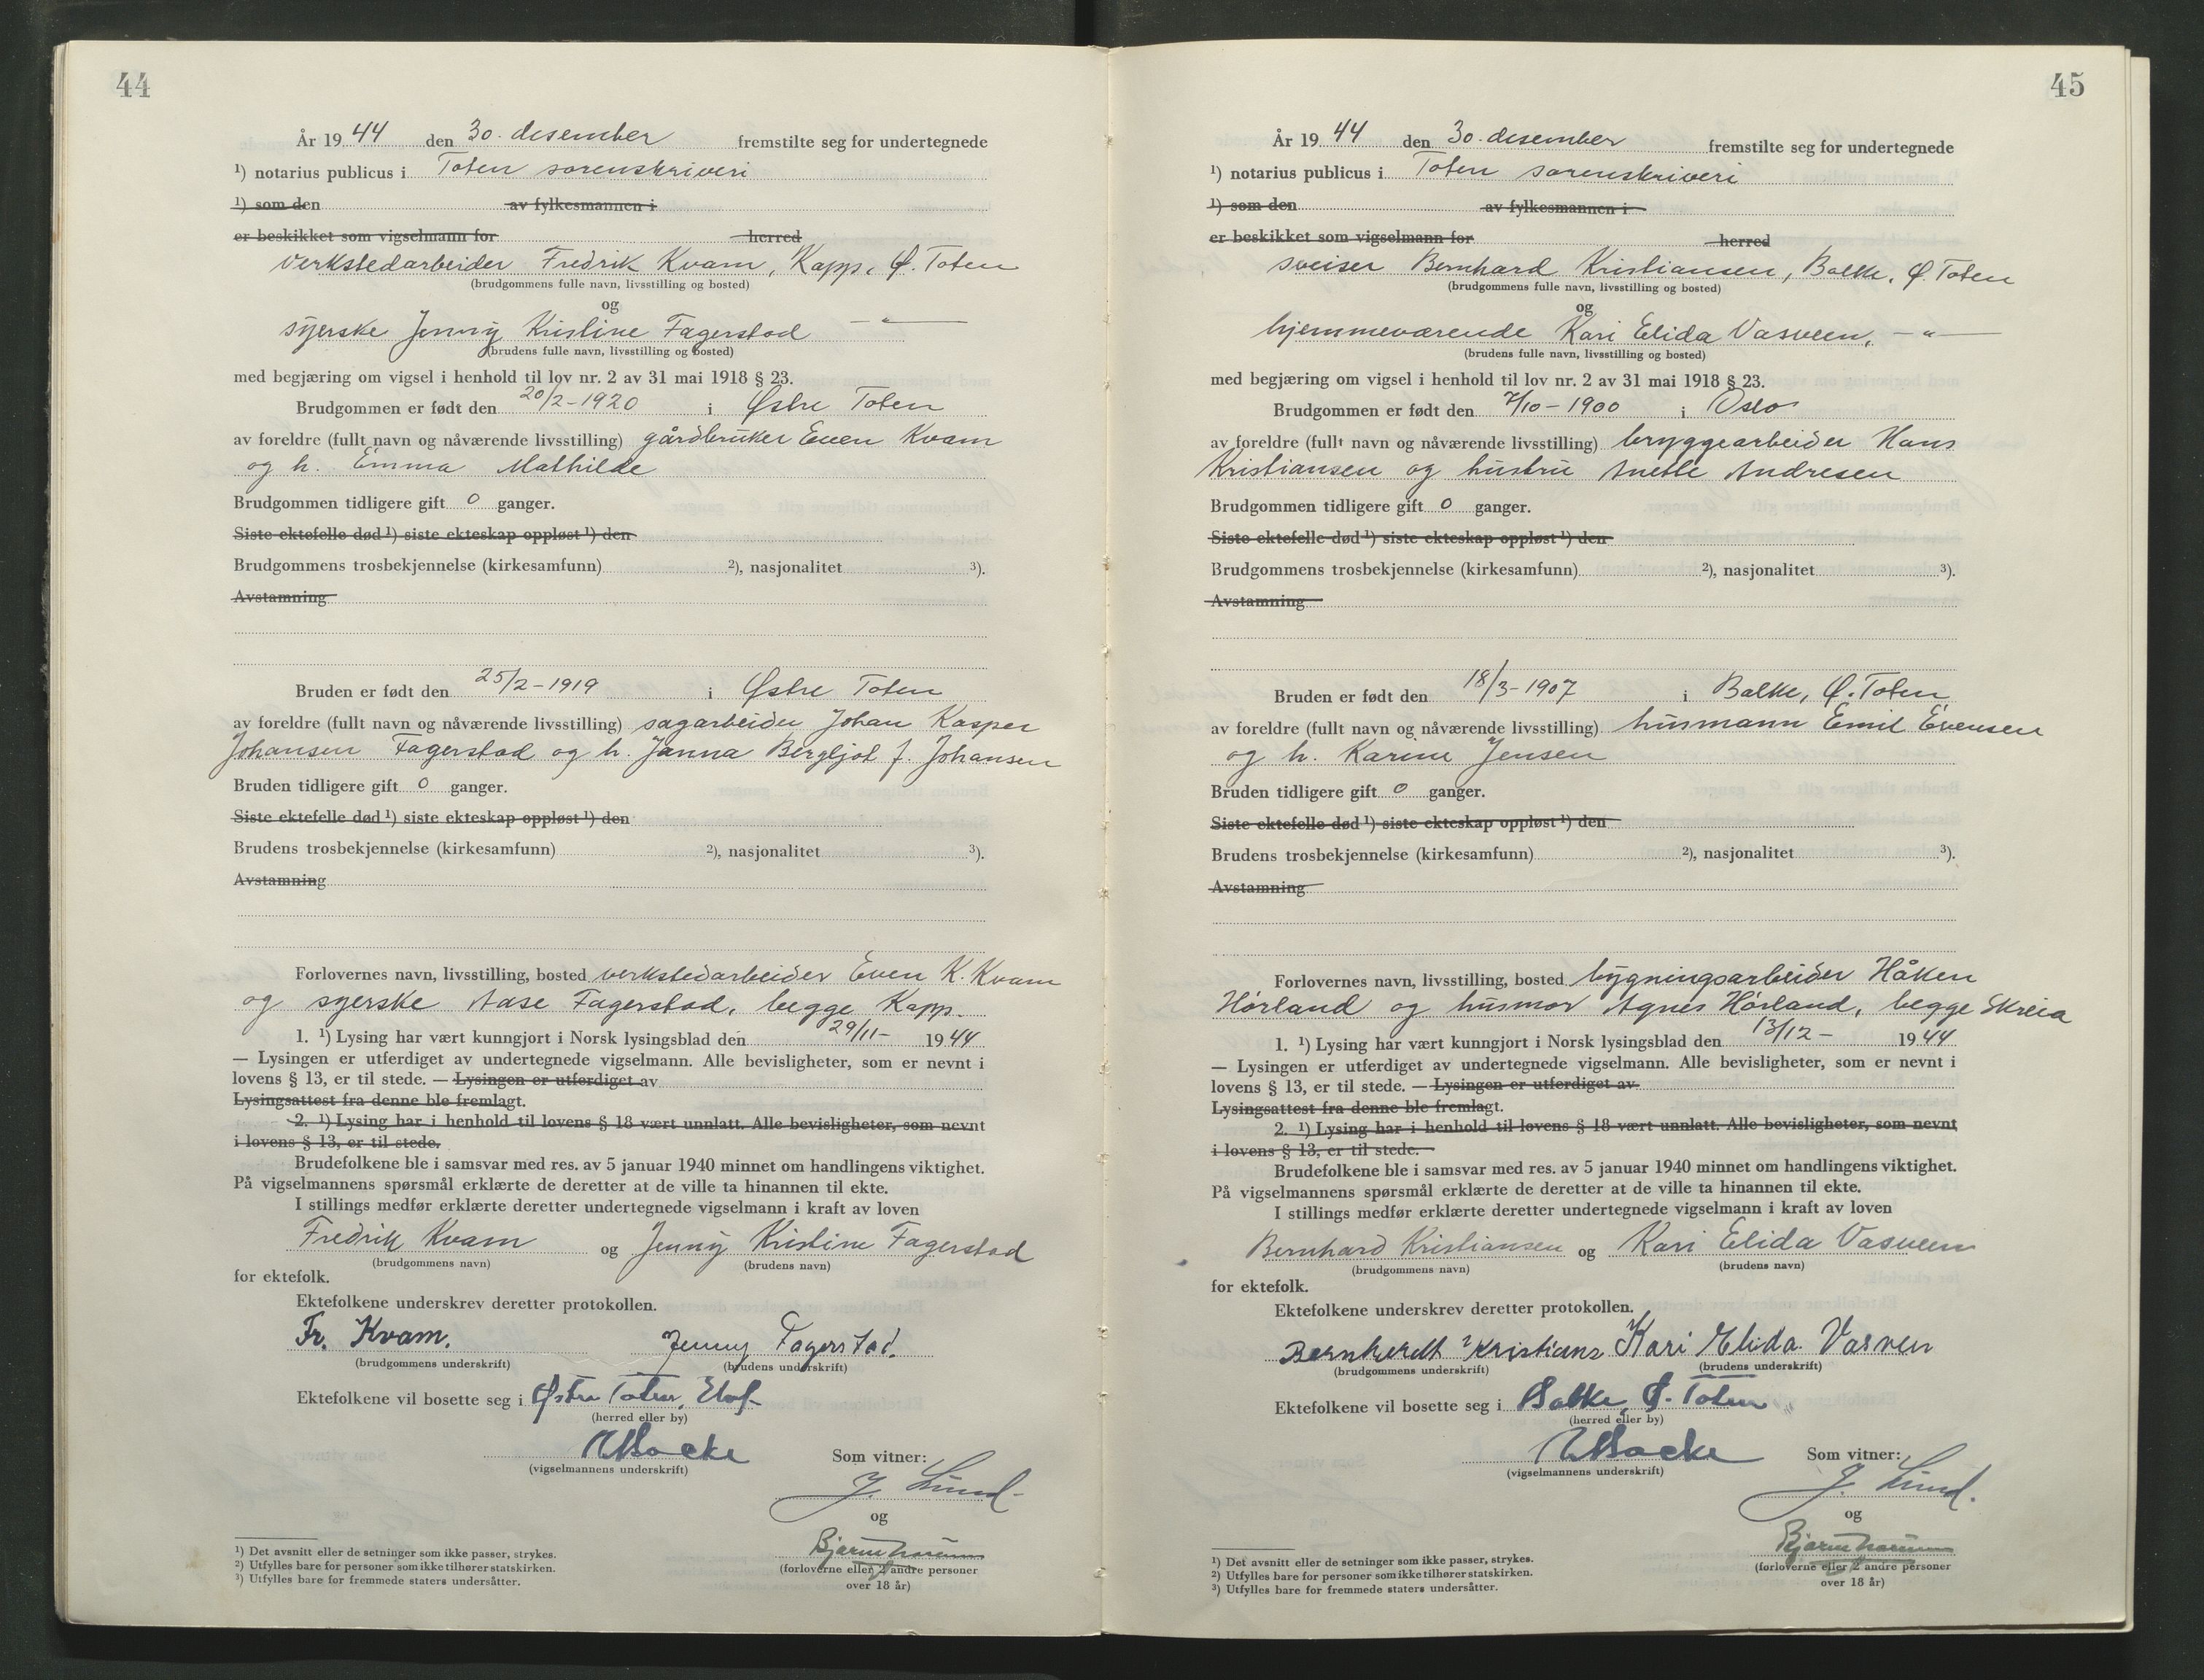 44
År 1944 den 30. desember fremstilte seg for undertegnede
¹) notarius publicus i Toten sorenskriveri
¹) som den av fylkesmannen i
er beskikket som vigselmann for herred
verkstedarbeider Fredrik Kvam, Kapp, Ø. Toten
(brudgommens fulle navn, livsstilling og bosted)
og
syerske Jenny Kristine Fagerstad — " —
(brudens fulle navn, livsstilling og bosted)
med begjæring om vigsel i henhold til lov nr. 2 av 31 mai 1918 § 23.
Brudgommen er født den 20/2-1920 i Østre Toten
av foreldre (fullt navn og nåværende livsstilling) gårdbruker Even Kvam
og h. Emma Mathilde
Brudgommen tidligere gift 0 ganger.
Siste ektefelle død ¹) siste ekteskap oppløst ¹) den
Brudgommens trosbekjennelse (kirkesamfunn) ²), nasjonalitet ³).
Avstamning
Bruden er født den 25/2-1919 i Østre Toten
av foreldre (fullt navn og nåværende livsstilling) sagarbeider Johan Kasper
Johansen Fagerstad og h. Janna Bergljot f. Johansen
Bruden tidligere gift 0 ganger.
Siste ektefelle død ¹) siste ekteskap oppløst ¹) den
Brudens trosbekjennelse (kirkesamfunn) ²), nasjonalitet ³).
Avstamning
Forlovernes navn, livsstilling, bosted verkstedarbeider Even K. Kvam
og syerske Aase Fagerstad, begge Kapp.
1. ¹) Lysing har vært kunngjort i Norsk lysingsblad den 29/11- 1944
— Lysingen er utferdiget av undertegnede vigselmann. Alle bevisligheter, som er nevnt i
lovens § 13, er til stede. — Lysingen er utferdiget av
Lysingsattest fra denne ble fremlagt.
2. ¹) Lysing har i henhold til lovens § 18 vært unnlatt. Alle bevisligheter, som nevnt
i lovens § 13, er til stede.
Brudefolkene ble i samsvar med res. av 5 januar 1940 minnet om handlingens viktighet.
På vigselmannens spørsmål erklærte de deretter at de ville ta hinannen til ekte.
I stillings medfør erklærte deretter undertegnede vigselmann i kraft av loven
Fredrik Kvam og Jenny Kristine Fagerstad
(brudgommens navn) (brudens navn)
for ektefolk.
Ektefolkene underskrev deretter protokollen.
Fr. Kvam. Jenny Fagerstad.
(brudgommens underskrift) (brudens underskrift)
Ektefolkene vil bosette seg i Østre Toten,
(herred eller by)
Som vitner:
(vigselmannens underskrift)
J. Lund
og
Bjarne
(forloverne eller 2 andre personer
over 18 år)
¹) Det avsnitt eller de setninger som ikke passer, strykes.
²) Utfylles bare for personer som ikke tilhører statskirken.
³) Utfylles bare for fremmede staters undersåtter.
45
År 1944 den 30. desember fremstilte seg for undertegnede
¹) notarius publicus i Toten sorenskriveri
¹) som den av fylkesmannen i
er beskikket som vigselmann for herred
sveiser Bernhard Kristiansen, Balke, Ø. Toten
(brudgommens fulle navn, livsstilling og bosted)
og
hjemmeværende Kari Elida Vasveen, — " —
(brudens fulle navn, livsstilling og bosted)
med begjæring om vigsel i henhold til lov nr. 2 av 31 mai 1918 § 23.
Brudgommen er født den 7/10-1900 i Oslo
av foreldre (fullt navn og nåværende livsstilling) bryggearbeider Hans
Kristiansen og hustru Anette Andresen
Brudgommen tidligere gift 0 ganger.
Siste ektefelle død ¹) siste ekteskap oppløst ¹) den
Brudgommens trosbekjennelse (kirkesamfunn) ²), nasjonalitet ³).
Avstamning
Bruden er født den 18/3-1907 i Balke, Ø. Toten
av foreldre (fullt navn og nåværende livsstilling) husmann Emil Evensen
og h. Karine Jensen
Bruden tidligere gift 0 ganger.
Siste ektefelle død ¹) siste ekteskap oppløst ¹) den
Brudens trosbekjennelse (kirkesamfunn) ²), nasjonalitet ³).
Avstamning
Forlovernes navn, livsstilling, bosted bygningsarbeider Håken
Hørland og husmor Agnes Hørland, begge Skreia
1. ¹) Lysing har vært kunngjort i Norsk lysingsblad den 13/12- 1944
— Lysingen er utferdiget av undertegnede vigselmann. Alle bevisligheter, som er nevnt i
lovens § 13, er til stede. — Lysingen er utferdiget av
Lysingsattest fra denne ble fremlagt.
2. ¹) Lysing har i henhold til lovens § 18 vært unnlatt. Alle bevisligheter, som nevnt
i lovens § 13, er til stede.
Brudefolkene ble i samsvar med res. av 5 januar 1940 minnet om handlingens viktighet.
På vigselmannens spørsmål erklærte de deretter at de ville ta hinannen til ekte.
I stillings medfør erklærte deretter undertegnede vigselmann i kraft av loven
Bernhard Kristiansen og Kari Elida Vasveen
(brudgommens navn) (brudens navn)
for ektefolk.
Ektefolkene underskrev deretter protokollen.
Kari Elida Vasven
(brudgommens underskrift) (brudens underskrift)
Ektefolkene vil bosette seg i Balke, Ø. Toten
(herred eller by)
Som vitner:
(vigselmannens underskrift)
J. Lund.
og
Bjarne
(forloverne eller 2 andre personer
over 18 år)
¹) Det avsnitt eller de setninger som ikke passer, strykes.
²) Utfylles bare for personer som ikke tilhører statskirken.
³) Utfylles bare for fremmede staters undersåtter.